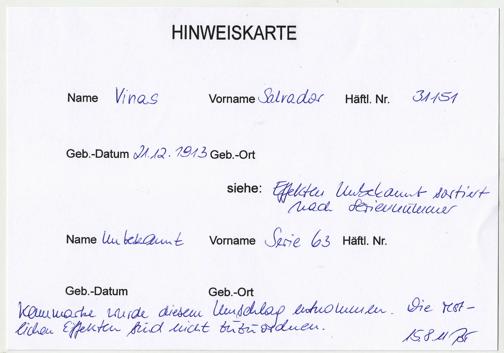 HINWEISKARTE
Name Vinas Vorname Salvador Häftl. Nr. 31151
Geb.-Datum 21.12.1913 Geb.-Ort
siehe: Effekten Unbekannt sortiert
nach Seriennummer
Name Unbekannt Vorname Serie 63 Häftl. Nr.
Geb.-Datum Geb.-Ort
wurde diesem Umschlag entnommen. Die rest-
lichen Effekten sind nicht zuzuordnen.
15.8.11